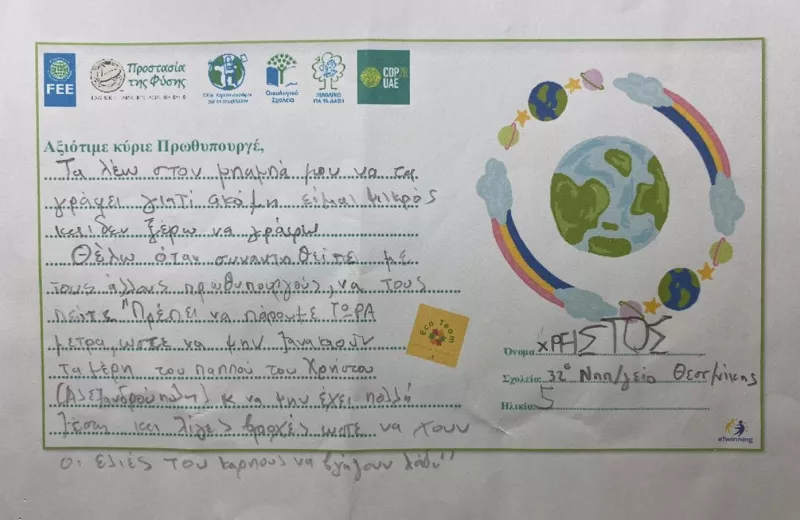 FEE
Προστασία
της Φύσης
Οικολογικά
Σχολεία
COP28
UAE
Αξιότιμε κύριε Πρωθυπουργέ,
Τα λέω στον μπαμπά μου να τα
γράψει γιατί ακόμη είμαι μικρός
και δεν ξέρω να γράφω
Θέλω όταν συναντηθείτε με
τους άλλους πρωθυπουργούς, να τους
πείτε "Πρέπει να πάρουμε ΤΩΡΑ
μέτρα, ώστε να μην ξανακαούν
τα μέρη του παππού του Χρήστου
(Αλεξανδρούπολη) κ να μην έχει πολλή
ζέστη και λίγες βροχές ώστε να χουν
οι ελιές του καρπούς να βγάζουν λάδι"
Eco Team
Όνομα: ΧΡΕΙΣΤΟΣ
Σχολείο: 32ο Νηπ/γείο Θεσ/νίκης
Ηλικία: 5
eTwinning